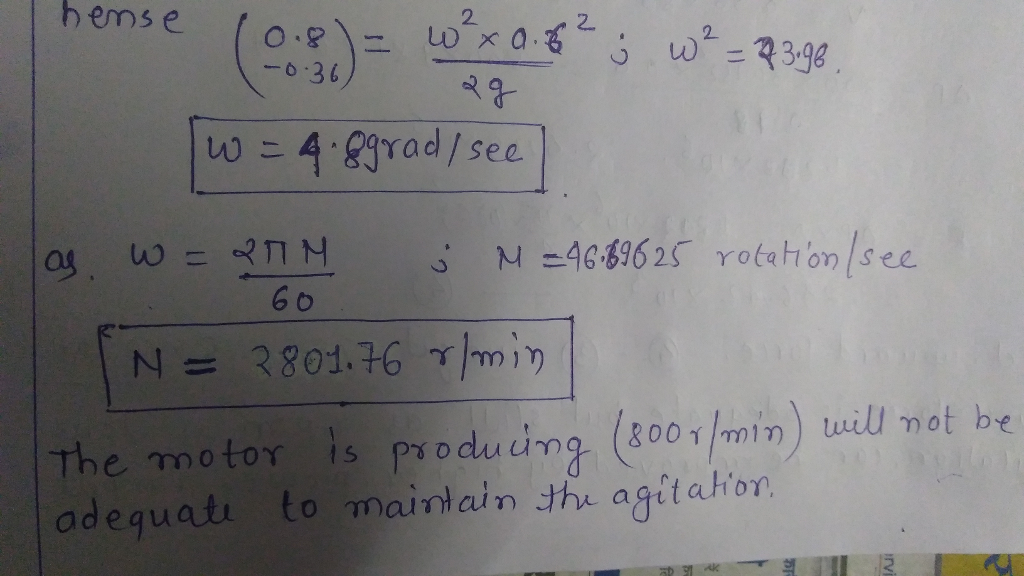 hense (0.8 -0.36) = w² x 0.6² / 2g ; w² = 23.98.
w = 4.89rad/see
as. w = 2πN / 60 ; N = 46.69625 rotation/see
N = 2801.76 r/min
The motor is producing (800r/min) will not be
adequate to maintain the agitation.